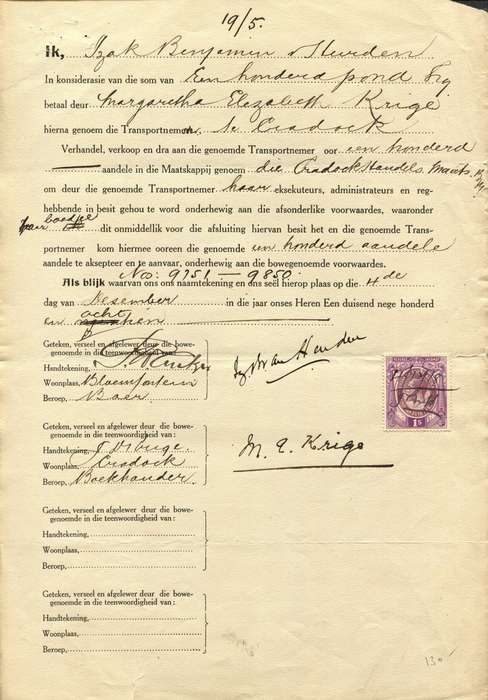 19/5.
Ik, Izak Benjamin v Heerden
In konsiderasie van die som van Een honderd pond Stg
betaal deur Margaretha Elizabeth Krige
hierna genoem die Transportnemer, te Cradock
Verhandel, verkoop en dra aan die genoemde Transportnemer oor een honderd
aandele in die Maatskappij genoem die Cradock Handels Maats.
om deur die genoemde Transportnemer haar eksekuteurs, administrateurs en reg-
hebbende in besit gehou te word onderhewig aan die afsonlike voorwaardes, waaronder
haar boedel dit onmiddellik voor die afsluiting hiervan besit het en die genoemde Trans-
portnemer kom hiermee ooreen die genoemde een honderd aandele
aandele te aksepteer en te aanvaar, onderhewig aan die bowegenoemde voorwaardes.
Nos: 9751 — 9850.
Als blijk waarvan ons ons naamtekening en ons seël hierop plaas op die 4de
dag van Desember in die jaar onses Heren Een duisend nege honderd
en acht tien
Geteken, verseel en afgelewer deur die bowe-
genoemde in die teenwoordigheid van:
Handtekening,
Woonplaas, Bloemfontein
Beroep, Boer
Izb van Heerden
1S
Geteken, verseel en afgelewer deur die bowe-
genoemde in die teenwoordigheid van:
Handtekening,
Woonplaas, Cradock
Beroep, Boekhouder.
M. E. Krige
Geteken, verseel en afgelewer deur die bowe-
genoemde in die teenwoordigheid van:
Handtekening,
Woonplaas,
Beroep,
Geteken, verseel en afgelewer deur die bowe-
genoemde in die teenwoordigheid van:
Handtekening,
Woonplaas,
Beroep,